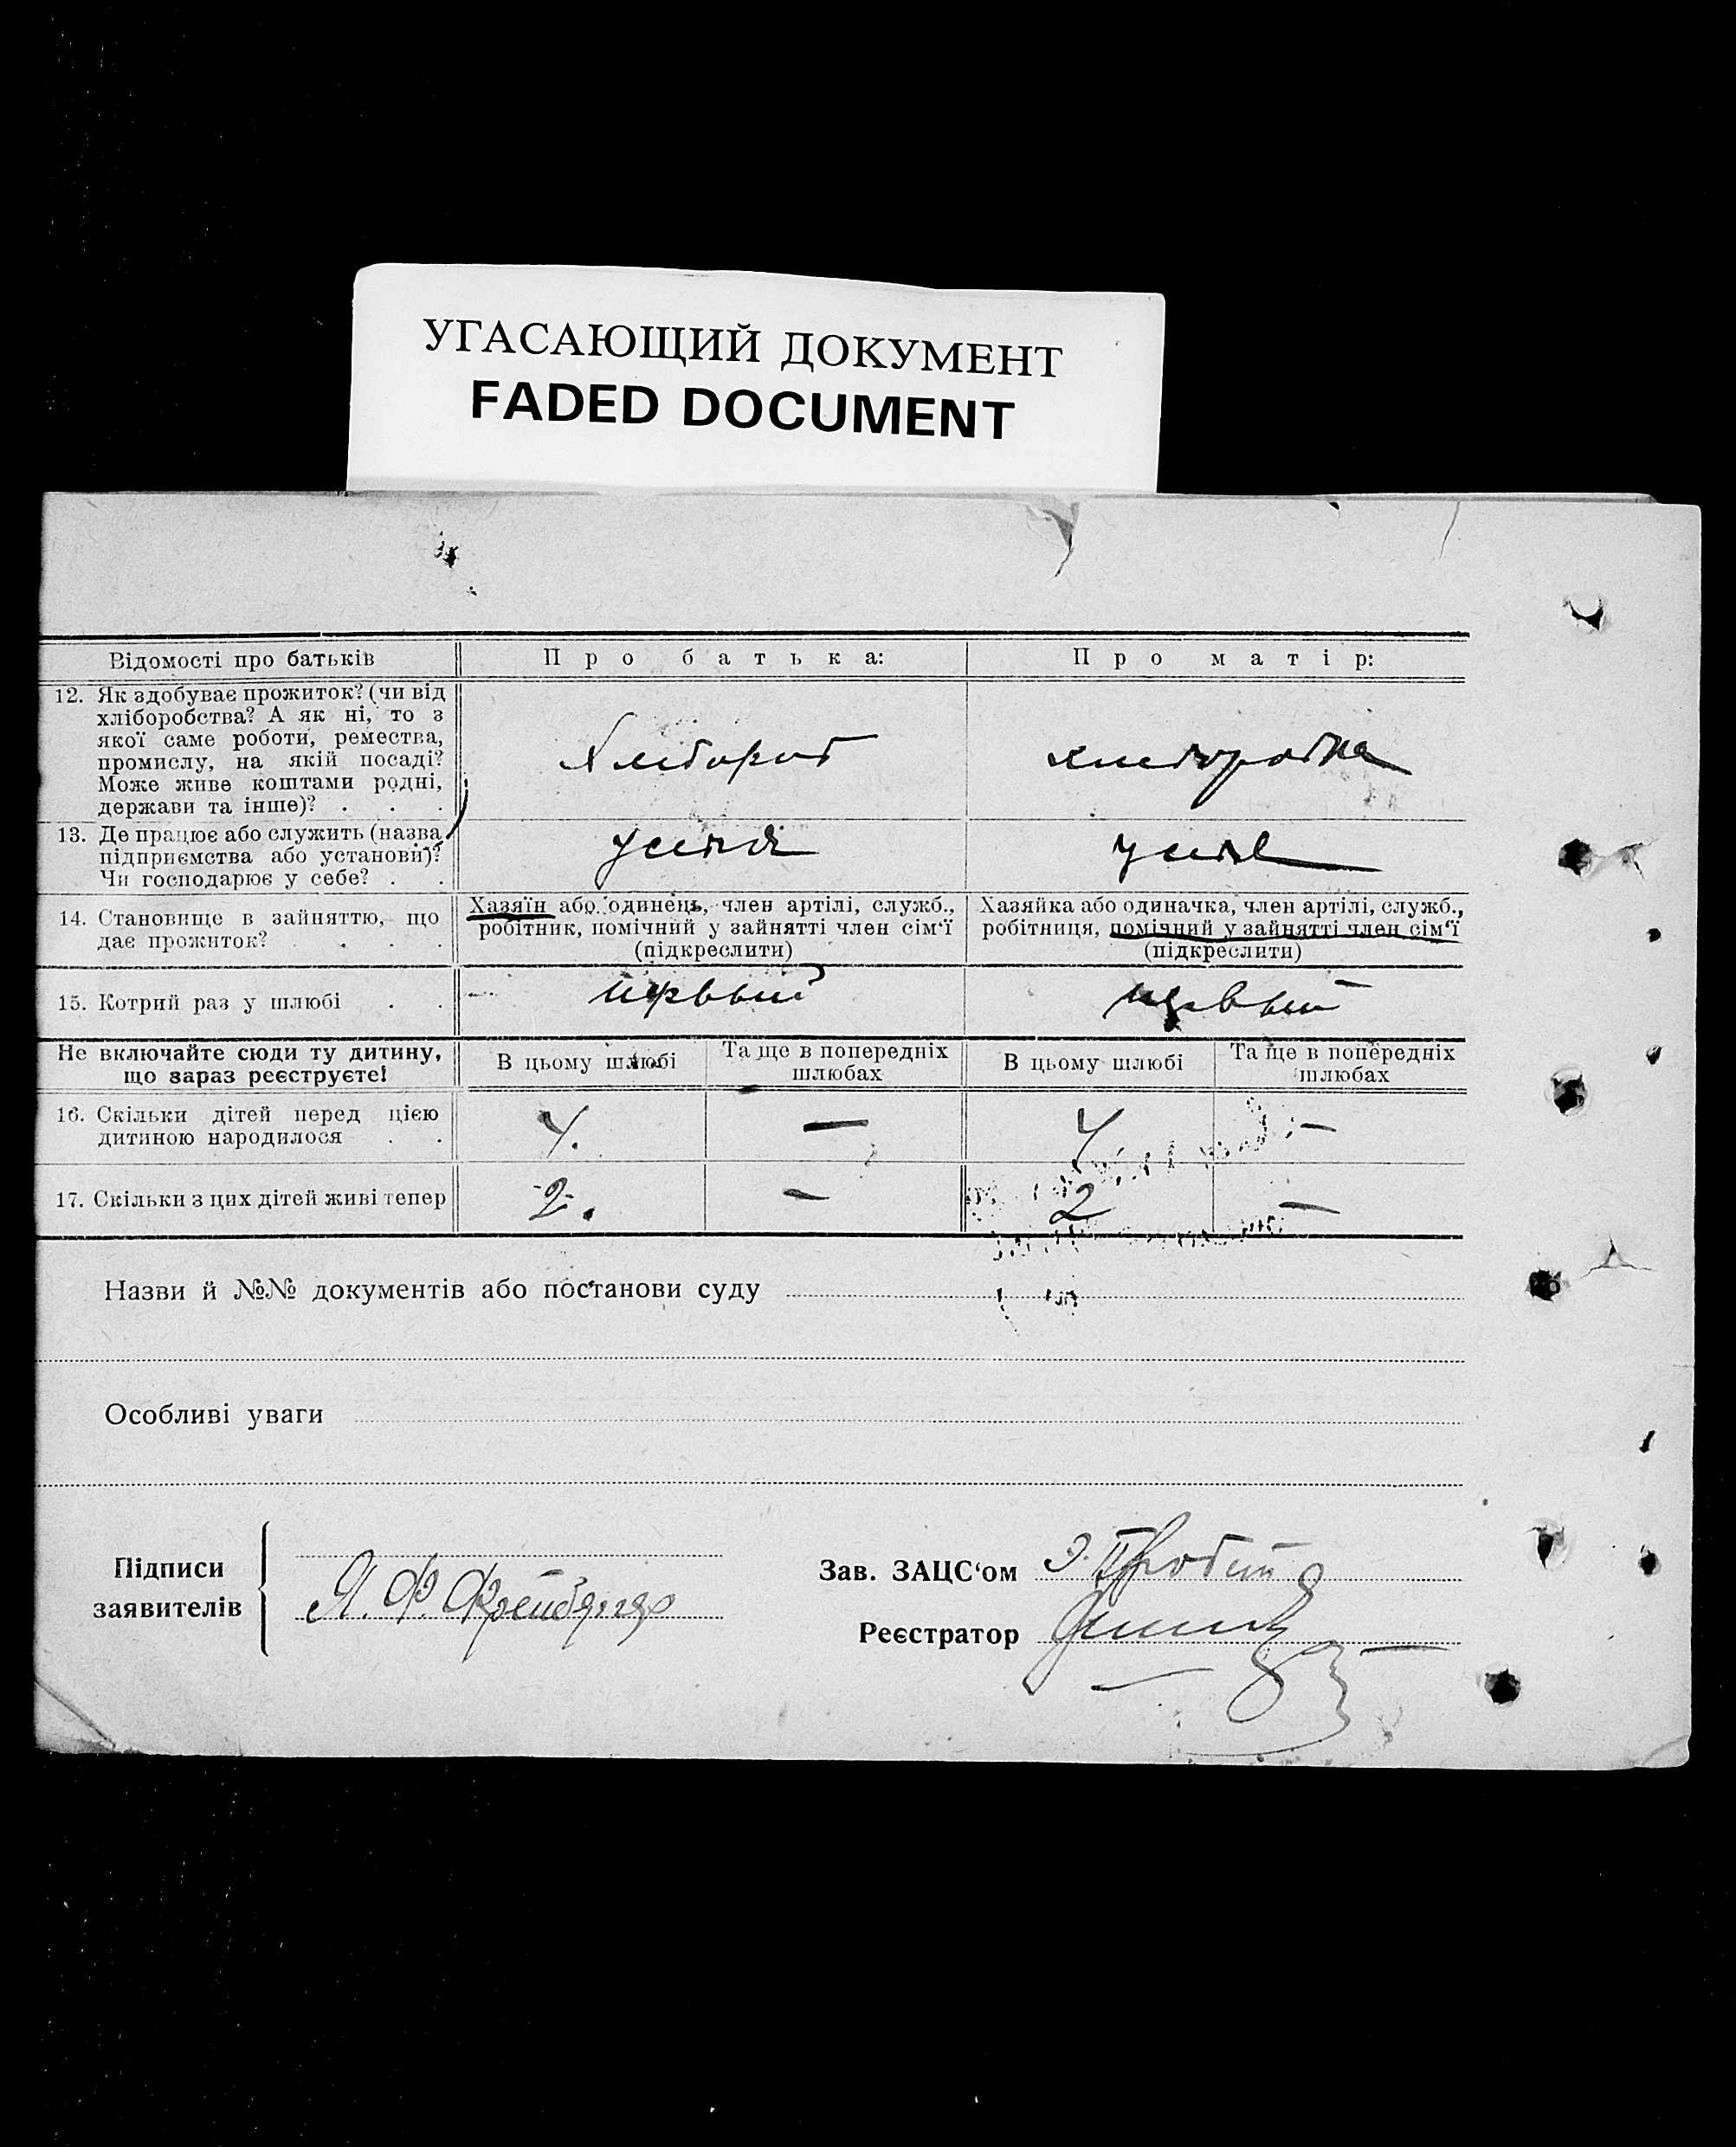 УГАСАЮЩИЙ ДОКУМЕНТ
FADED DOCUMENT
Відомості про батьків
Про батька:
Про матір:
12. Як здобуває прожиток? (чи від
хліборобства? А як ні, то з
якої саме роботи, ремества,
промислу, на якій посаді?
Може живе коштами родні,
держави та інше)? . . .
Хлебороб
хлеборобка
13. Де працює або служить (назва
підприємства або установи)?
Чи господарює у себе? . .
у себя
у себя
14. Становище в зайняттю, що
дає прожиток? . . . .
Хазяїн або одинець, член артілі, служб.,
робітник, помічний у зайнятті член сім'ї
(підкреслити)
Хазяйка або одиначка, член артілі, служб.,
робітниця, помічний у зайнятті член сім'ї
(підкреслити)
15. Котрий раз у шлюбі . .
первый
первый
Не включайте сюди ту дитину,
що зараз реєструєте!
В цьому шлюбі
Та ще в попередніх
шлюбах
В цьому шлюбі
Та ще в попередніх
шлюбах
16. Скільки дітей перед цією
дитиною народилося . .
4. — 4 —
17. Скільки з цих дітей живі тепер
2. — 2 —
Назви й №№ документів або постанови суду
Особливі уваги
Підписи
заявителів
Я. Ф.
Зав. ЗАЦС'ом
Реєстратор